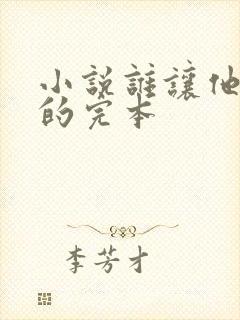 小说誰讓他
的完本
李芳才